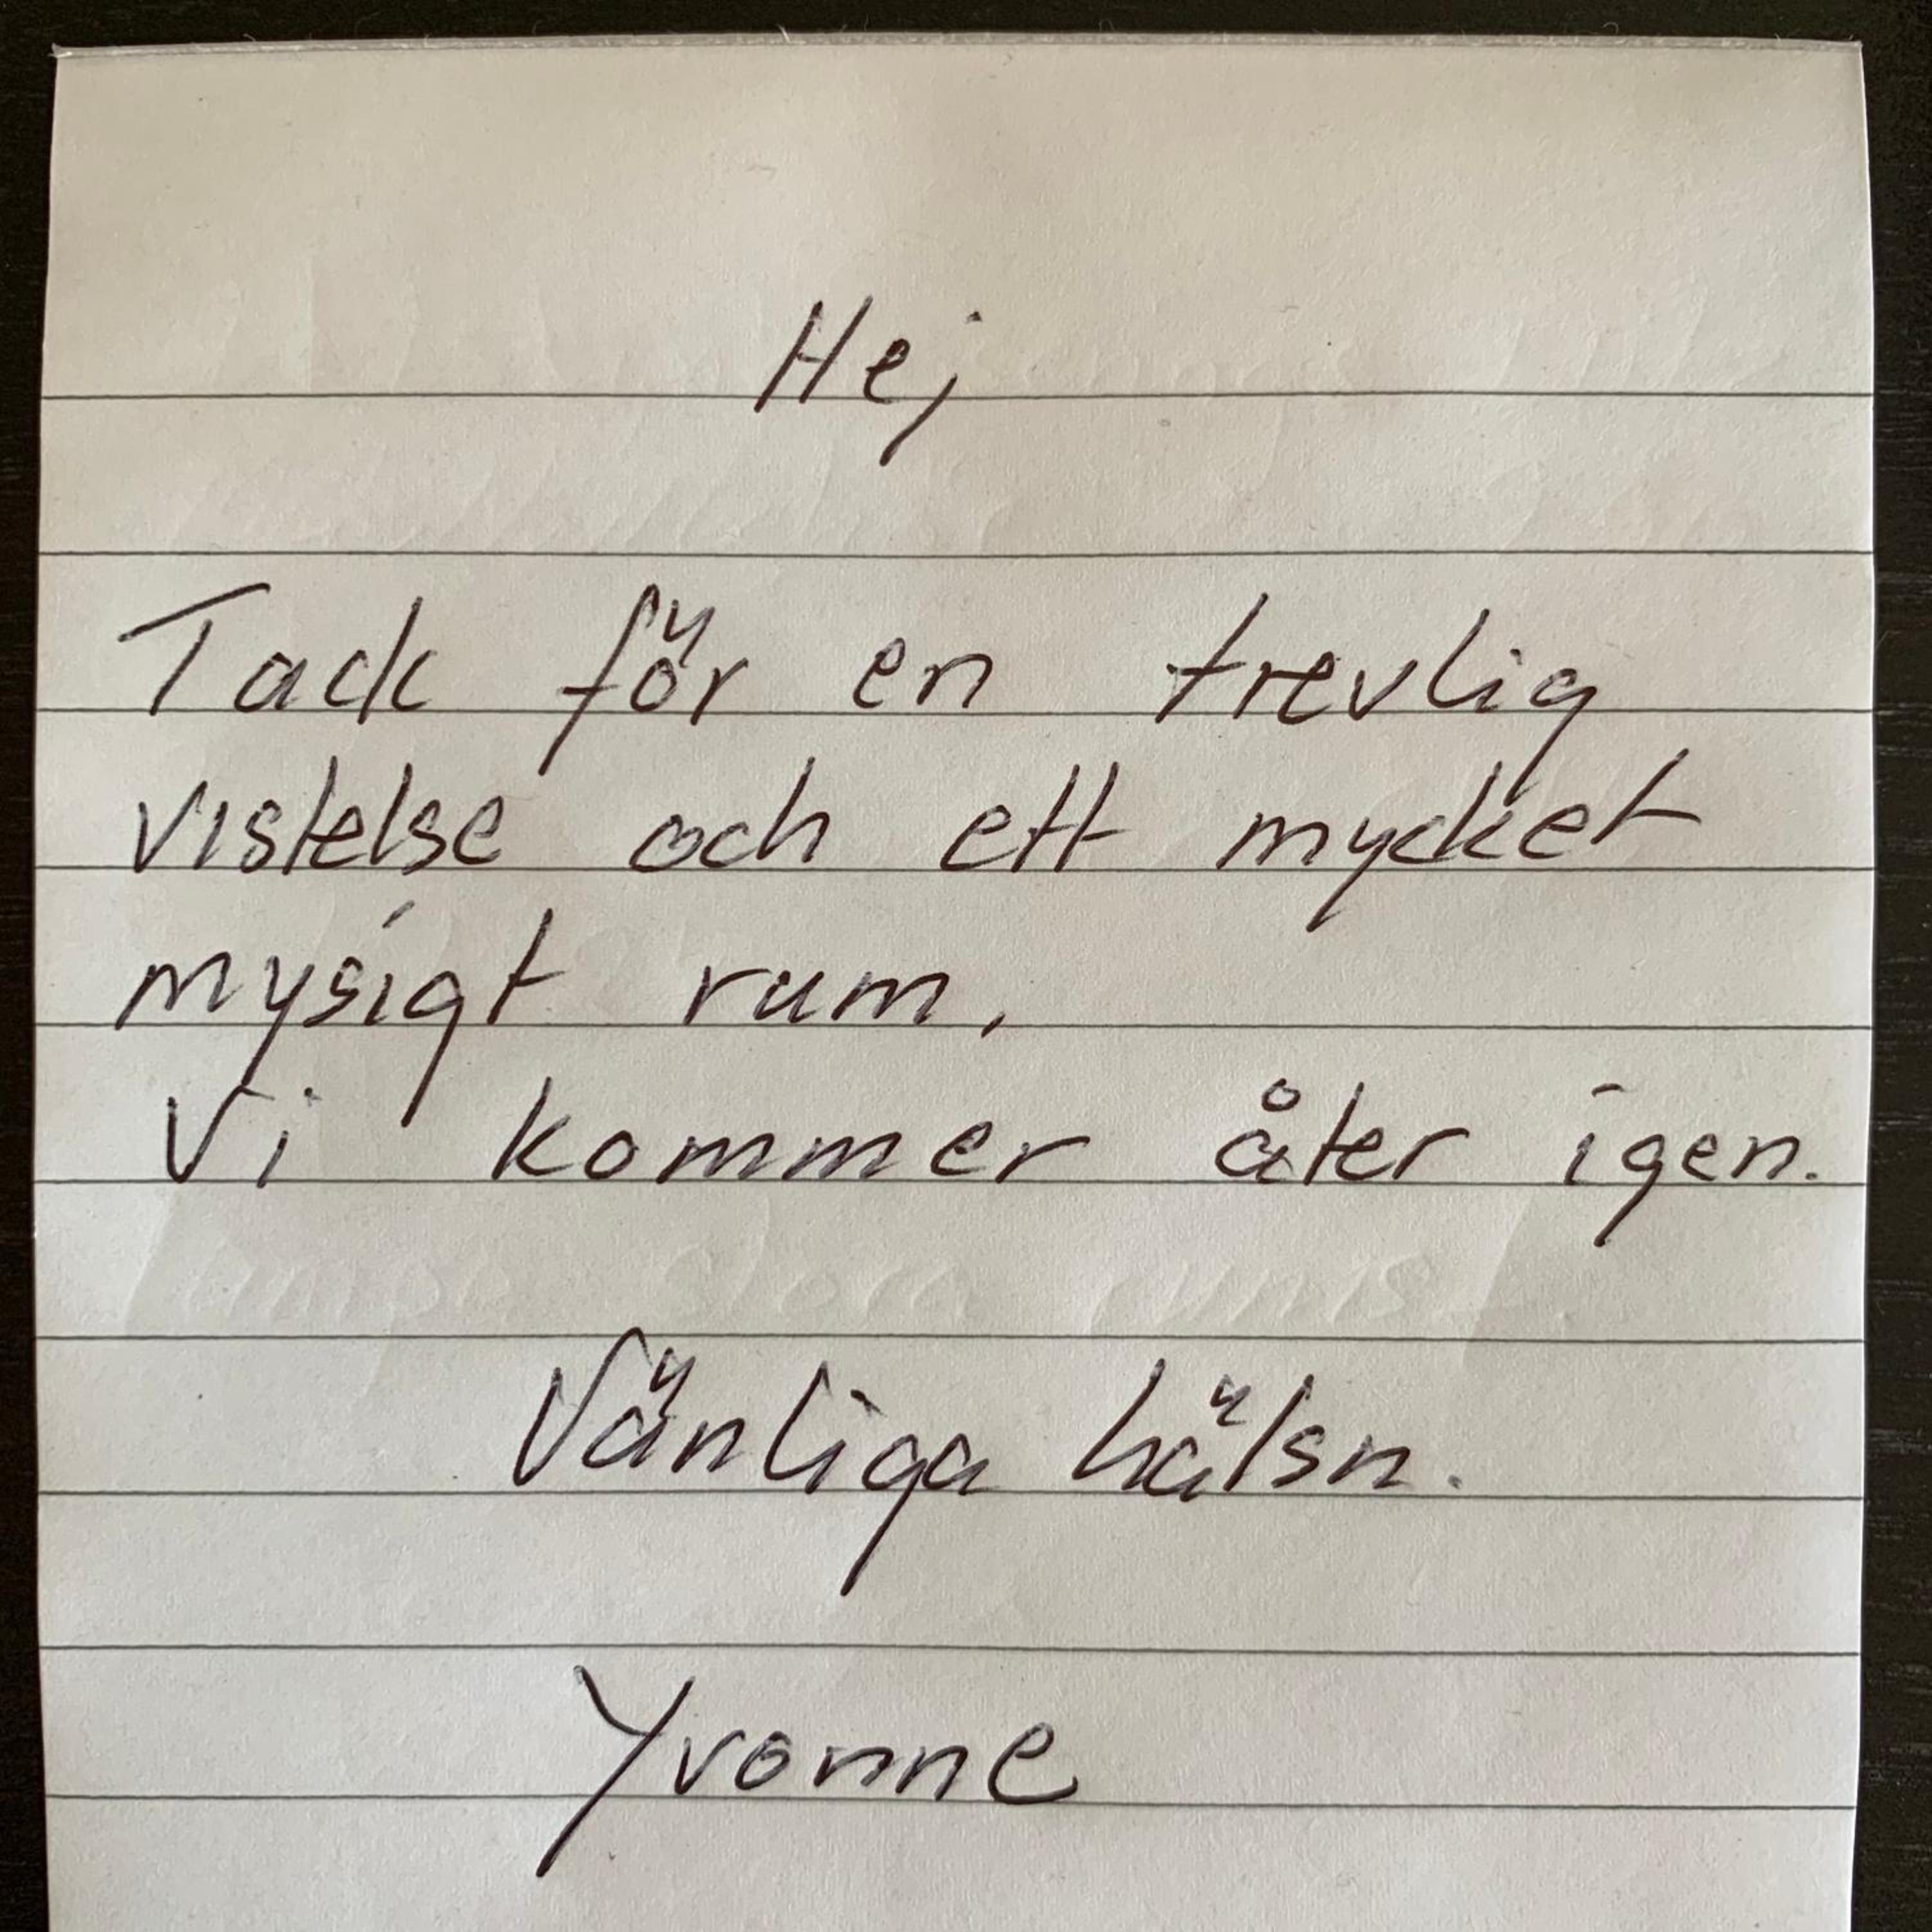 Hej
Tack för en trevlig
vistelse och ett mycket
mysigt rum.
Vi kommer åter igen.
Vänliga hälsn.
Yvonne